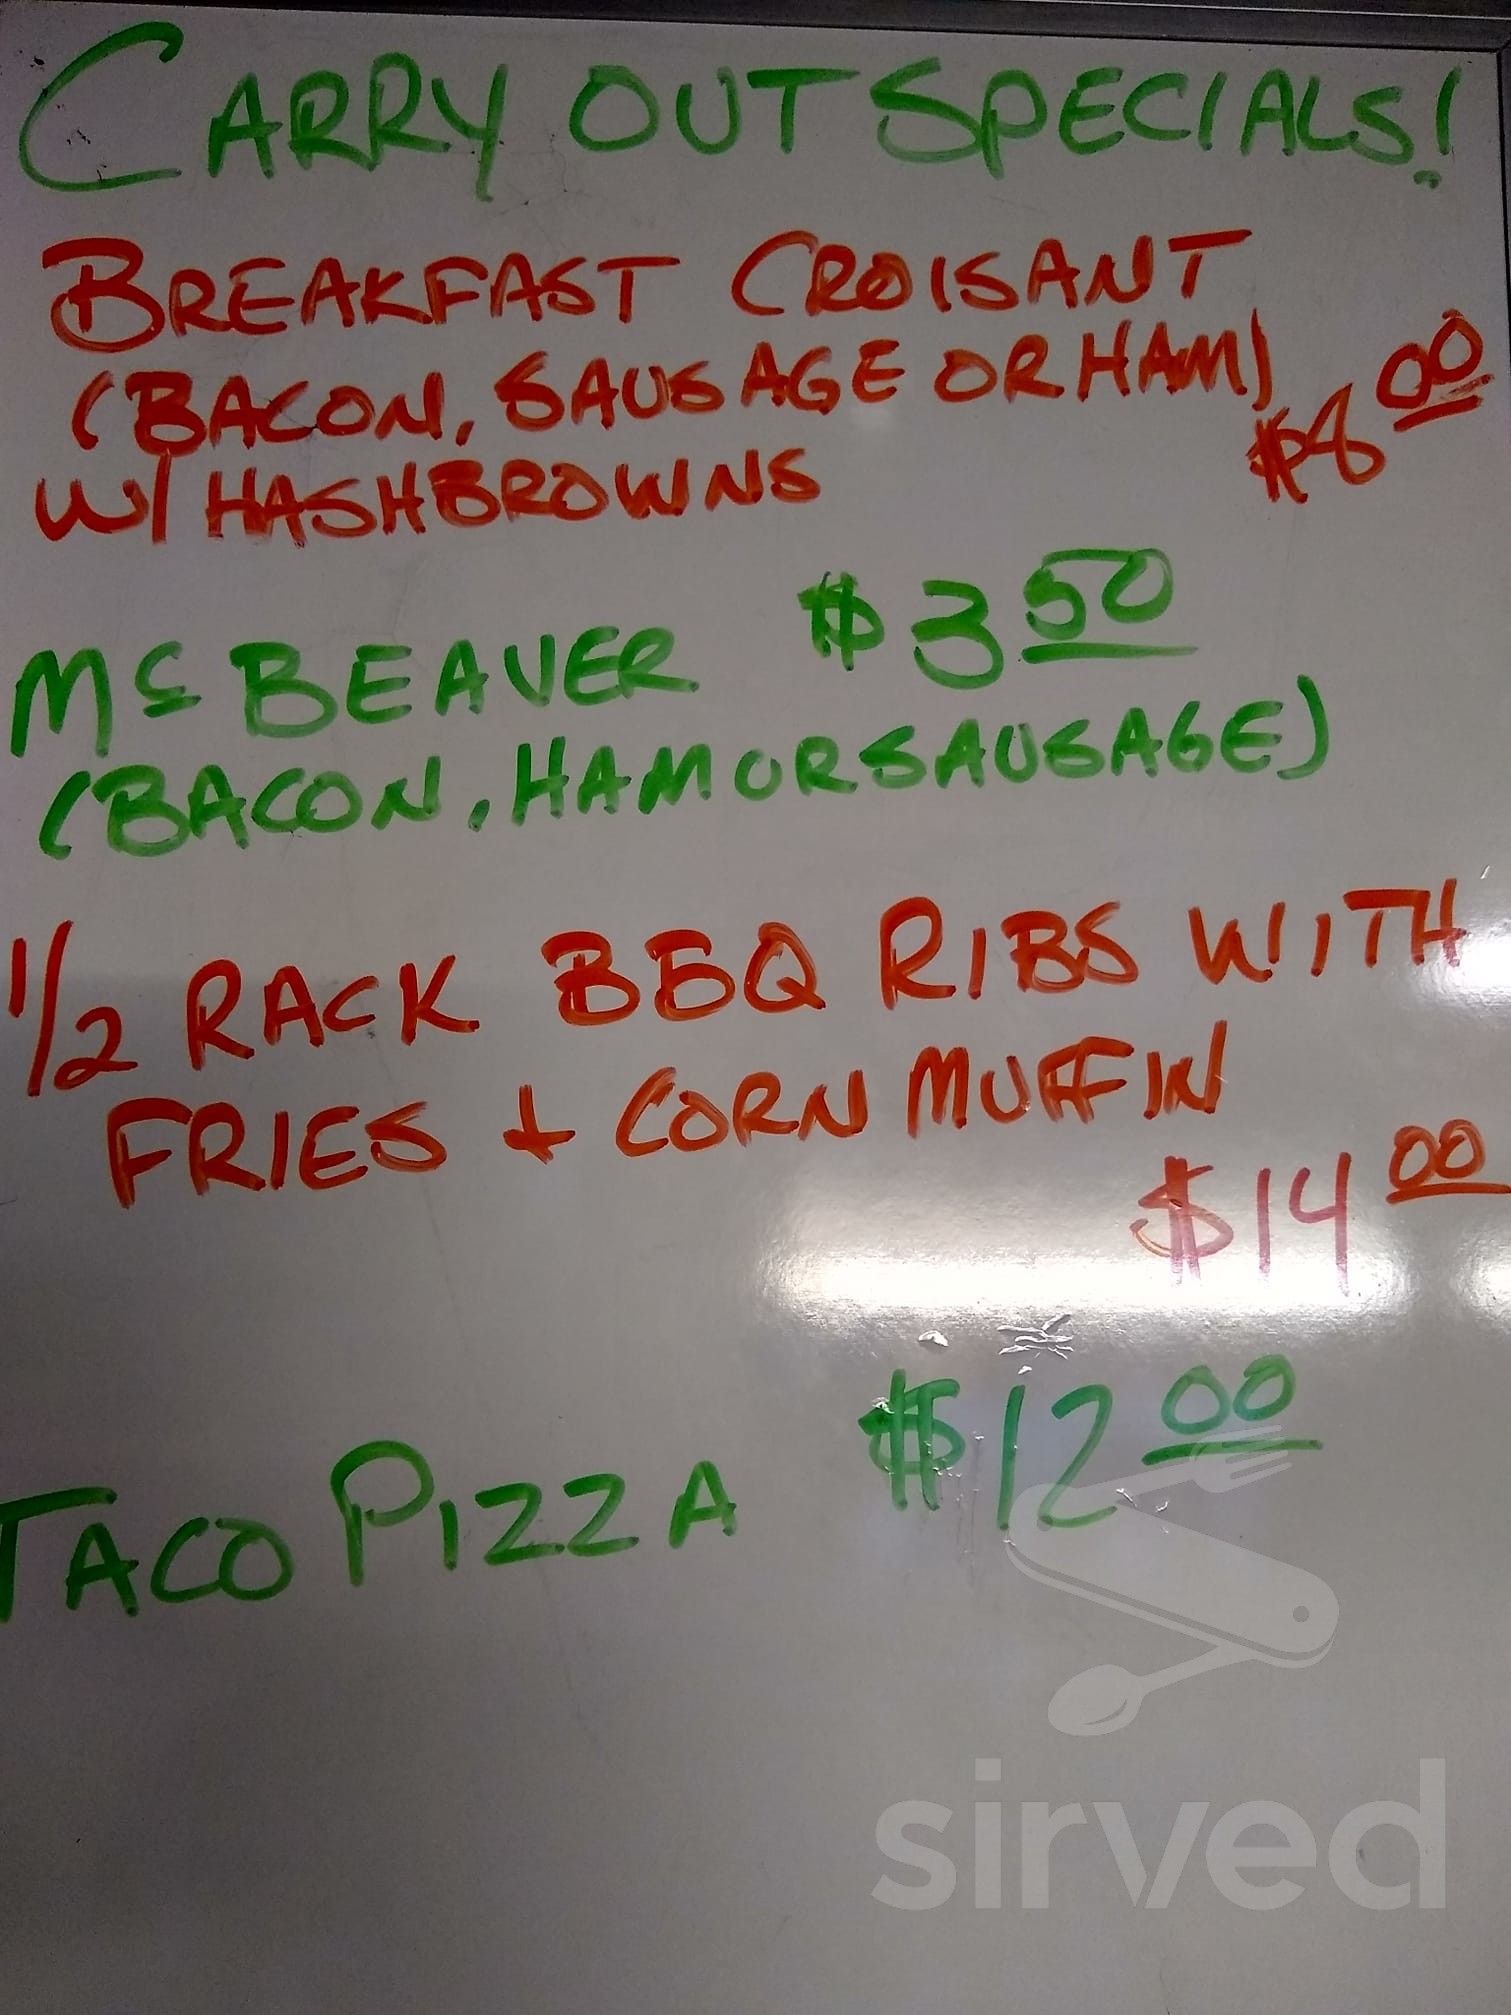 CARRY OUT SPECIALS!
BREAKFAST CROISANT
(BACON, SAUSAGE OR HAM) $8 00
W/ HASHBROWNS
Mc BEAVER $3 50
(BACON, HAM OR SAUSAGE)
1/2 RACK BBQ RIBS WITH
FRIES + CORN MUFFIN
$14 00
TACO PIZZA $12 00
sirved